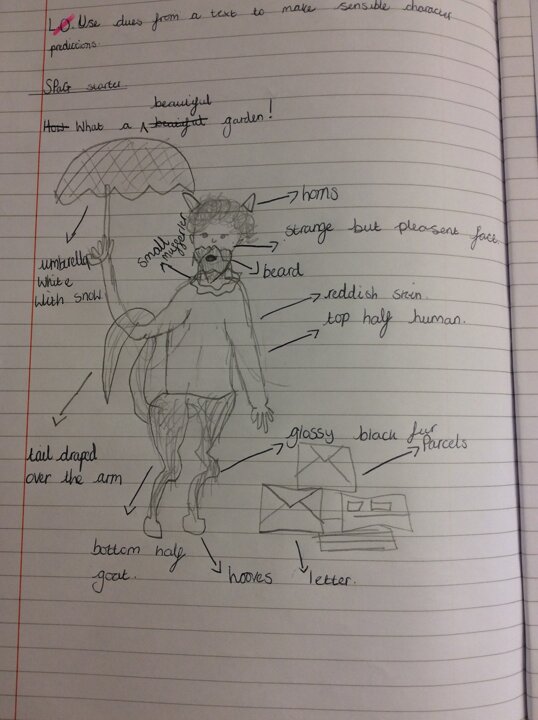 L.O. Use clues from a text to make sensible character
predictions.
SPaG starter.
beautiful
How What a ^ beautiful garden!
horns
strange but pleasent face.
small
beard
umbrella
white
with snow
reddish skin.
top half human.
glossy black fur
Parcels
tail draped
over the arm
bottom half
goat.
hooves
letter.